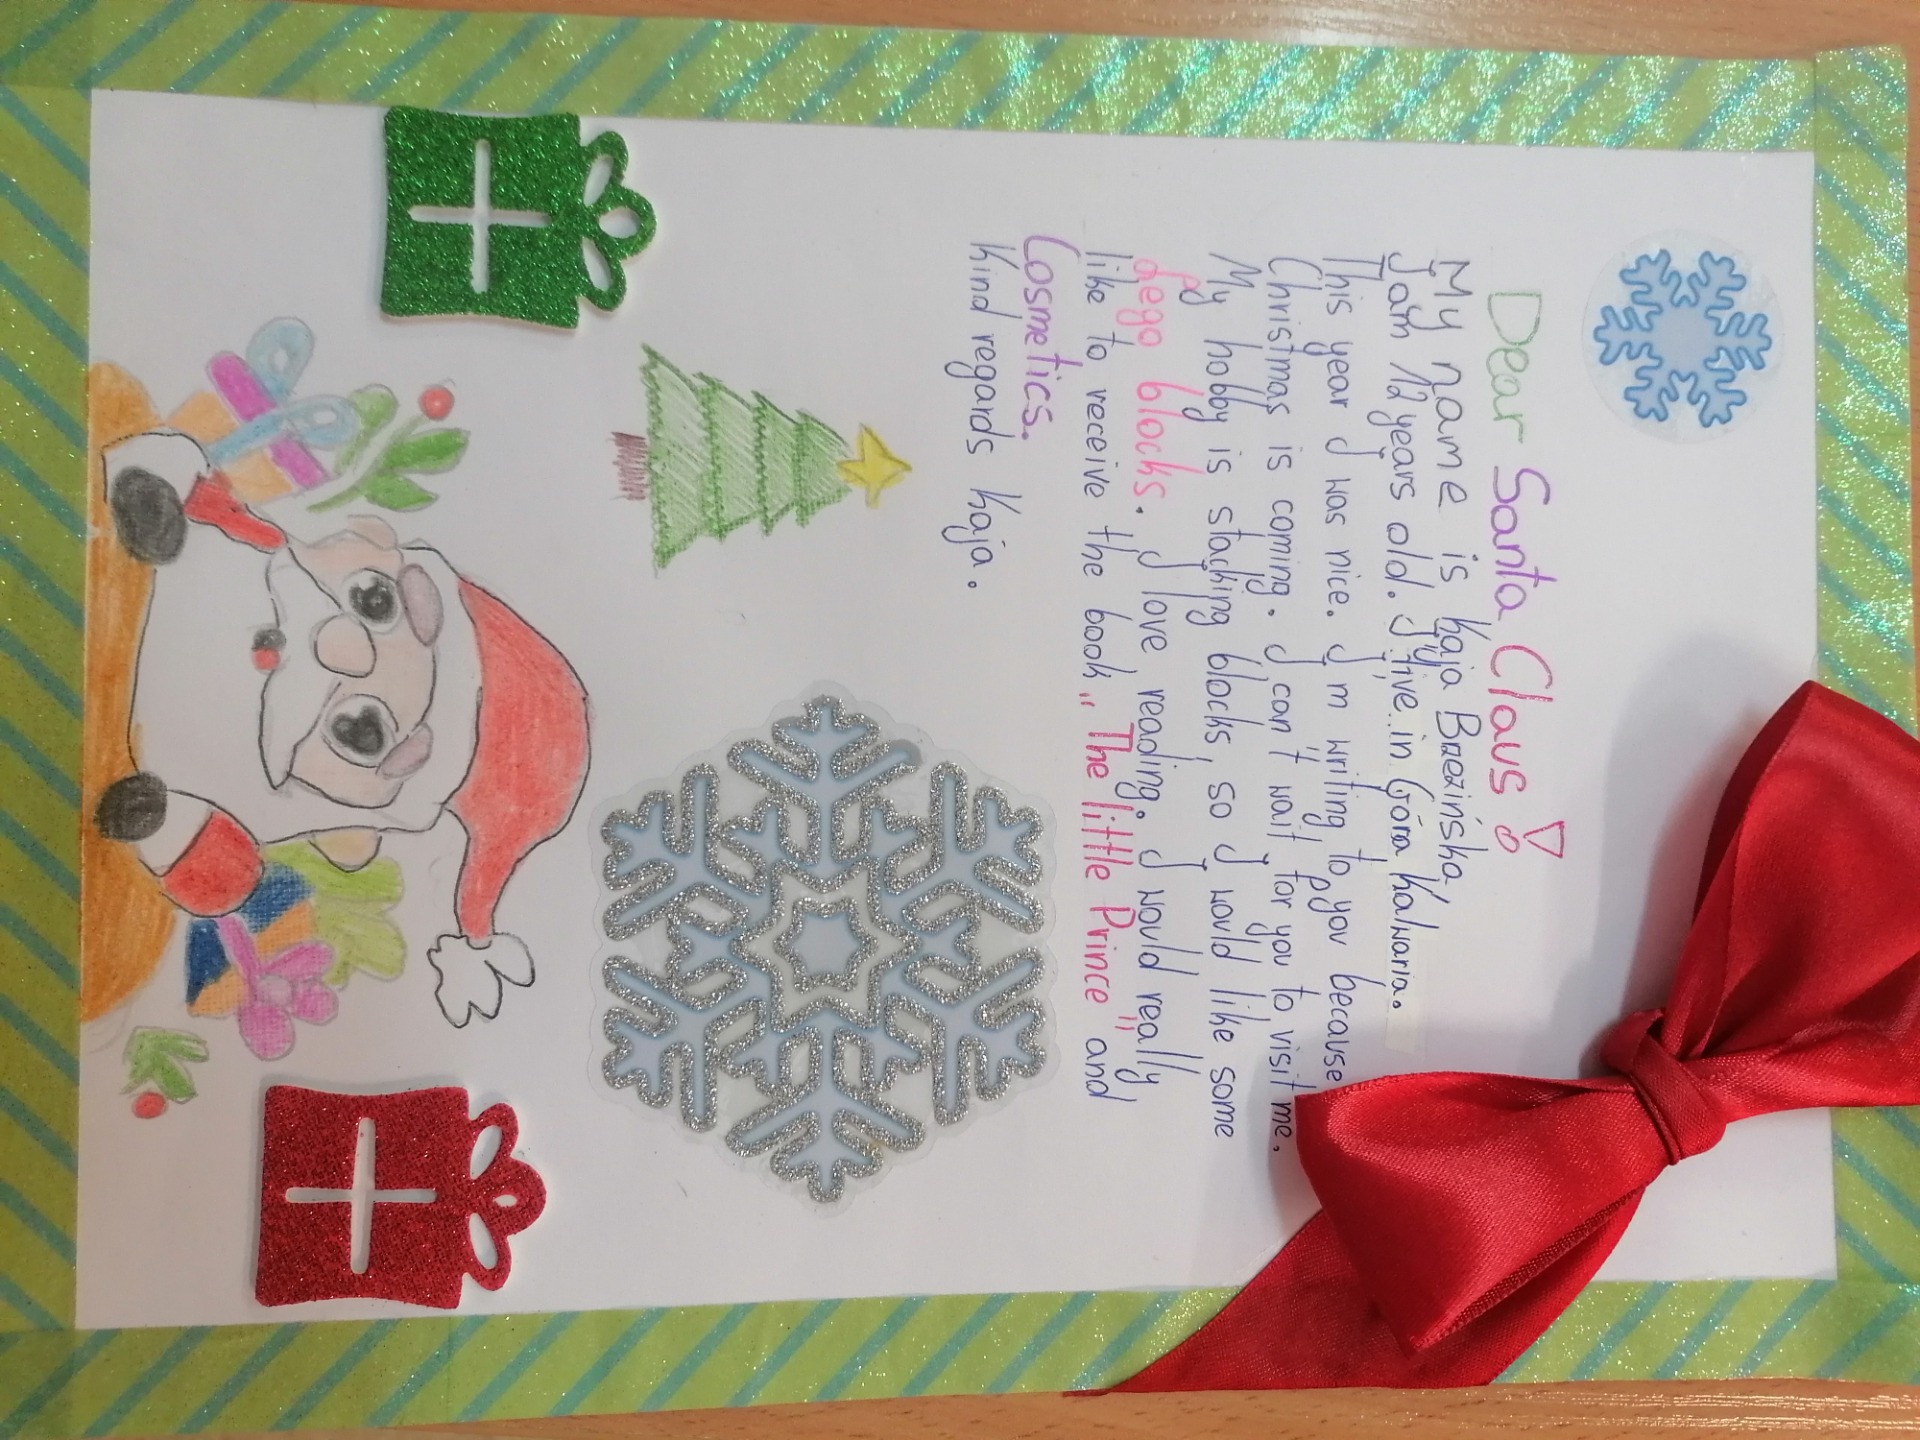 Dear Santa Claus!
My name is Kaja Brzezińska.
I am 12 years old. I live in Góra Kalwaria.
This year I was nice. I'm writing to you because
Christmas is coming. I can't wait for you to visit me.
My hobby is stacking blocks, so I would like some
Lego blocks. I love reading. I would really
like to receive the book „The little Prince" and
Cosmetics.
Kind regards Kaja.